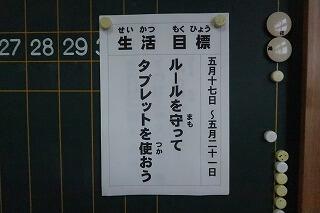 せい かつ もく ひょう
生活目標
五月十七日 ～五月二十一日
まも
ルールを守って
つか
タブレットを使おう
27 28 29 3